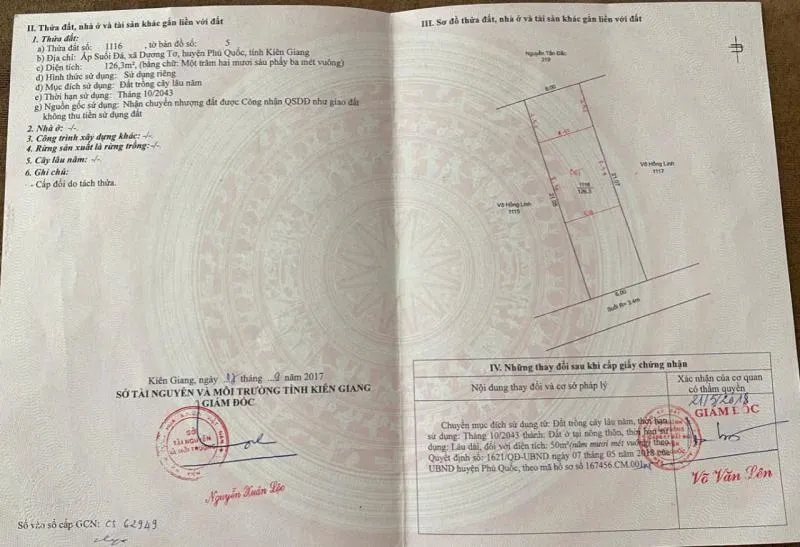 II. Thửa đất, nhà ở và tài sản khác gắn liền với đất
1. Thửa đất:
a) Thửa đất số: 1116 , tờ bản đồ số: 5
b) Địa chỉ: Ấp Suối Đá, xã Dương Tơ, huyện Phú Quốc, tỉnh Kiên Giang
c) Diện tích: 126,3m², (bằng chữ: Một trăm hai mươi sáu phẩy ba mét vuông)
d) Hình thức sử dụng: Sử dụng riêng
đ) Mục đích sử dụng: Đất trồng cây lâu năm
e) Thời hạn sử dụng: Tháng 10/2043
g) Nguồn gốc sử dụng: Nhận chuyển nhượng đất được Công nhận QSDĐ như giao đất
không thu tiền sử dụng đất
2. Nhà ở: -/-
3. Công trình xây dựng khác: -/-
4. Rừng sản xuất là rừng trồng: -/-
5. Cây lâu năm: -/-
6. Ghi chú:
- Cấp đổi do tách thửa.
Kiên Giang, ngày tháng 9 năm 2017
SỞ TÀI NGUYÊN VÀ MÔI TRƯỜNG TỈNH KIÊN GIANG
GIÁM ĐỐC
SỞ
TÀI NGUYÊN
VÀ MÔI TRƯỜNG
Nguyễn Xuân Lộc
Số vào sổ cấp GCN: CS 62949
III. Sơ đồ thửa đất, nhà ở và tài sản khác gắn liền với đất
Nguyễn Tấn Đắc
319
6.00
Võ Hồng Linh
1117
21.07
1116
126.3
21.05
Võ Hồng Linh
1115
6.00
Suối R= 3.4m
IV. Những thay đổi sau khi cấp giấy chứng nhận
Nội dung thay đổi và cơ sở pháp lý
Xác nhận của cơ quan
có thẩm quyền
21/5/2018
GIÁM ĐỐC
Chuyển mục đích sử dụng từ: Đất trồng cây lâu năm, thời hạn
sử dụng: Tháng 10/2043 thành: Đất ở tại nông thôn, thời hạn sử
dụng: Lâu dài, đối với diện tích: 50m²(năm mươi mét vuông) theo
Quyết định số: 1621/QĐ-UBND ngày 07 tháng 05 năm 2018 của
UBND huyện Phú Quốc, theo mã hồ sơ số 167456.CM.001
Võ Văn Lên